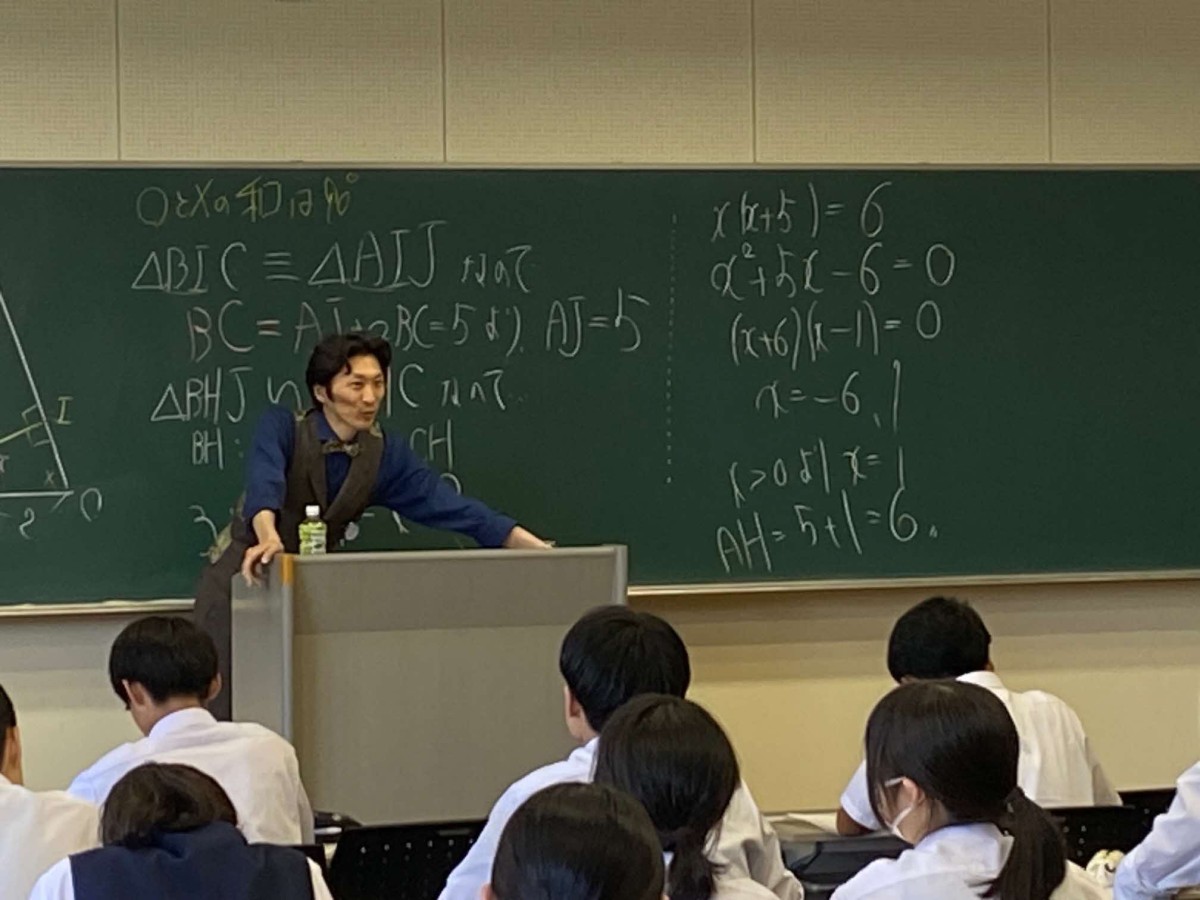 ○と×の和は90°
△BIC≡△AIJ なので
BC=AJ BC=5より AJ=5
△BHJ HC なので
BH: CH
I
x
×
2 C
x(x+5)=6
x²+5x-6=0
(x+6)(x-1)=0
x=-6,1
x>0より x=1
AH=5+1=6。